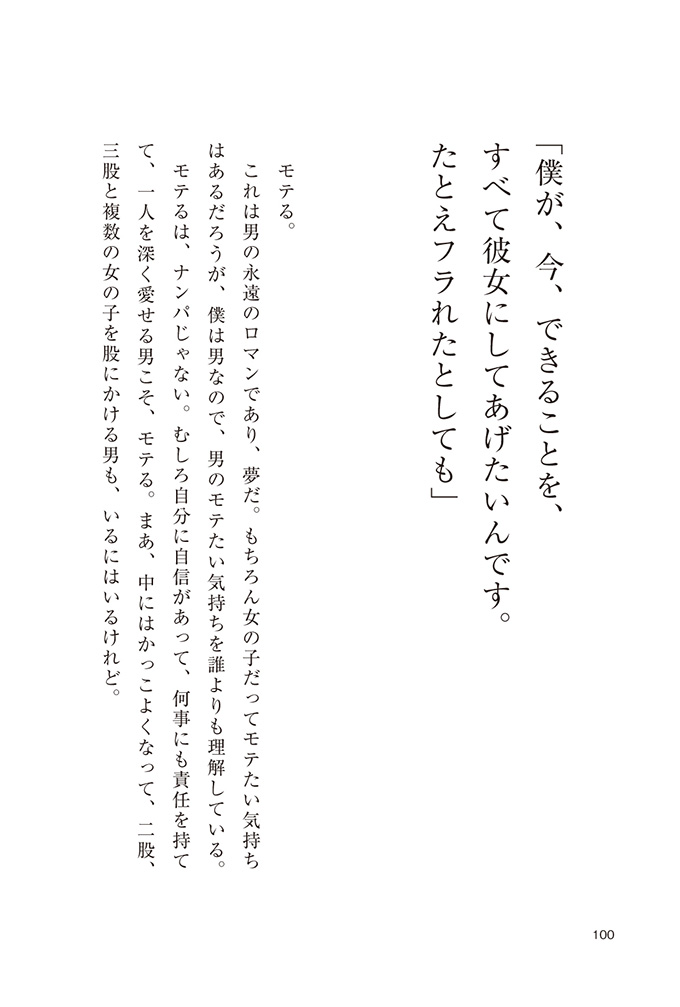 「僕が、今、できることを、
すべて彼女にしてあげたいんです。
たとえフラれたとしても」
モテる。
これは男の永遠のロマンであり、夢だ。もちろん女の子だってモテたい気持ち
はあるだろうが、僕は男なので、男のモテたい気持ちを誰よりも理解している。
モテるは、ナンパじゃない。むしろ自分に自信があって、何事にも責任を持て
て、一人を深く愛せる男こそ、モテる。まあ、中にはかっこよくなって、二股、
三股と複数の女の子を股にかける男も、いるにはいるけれど。
100